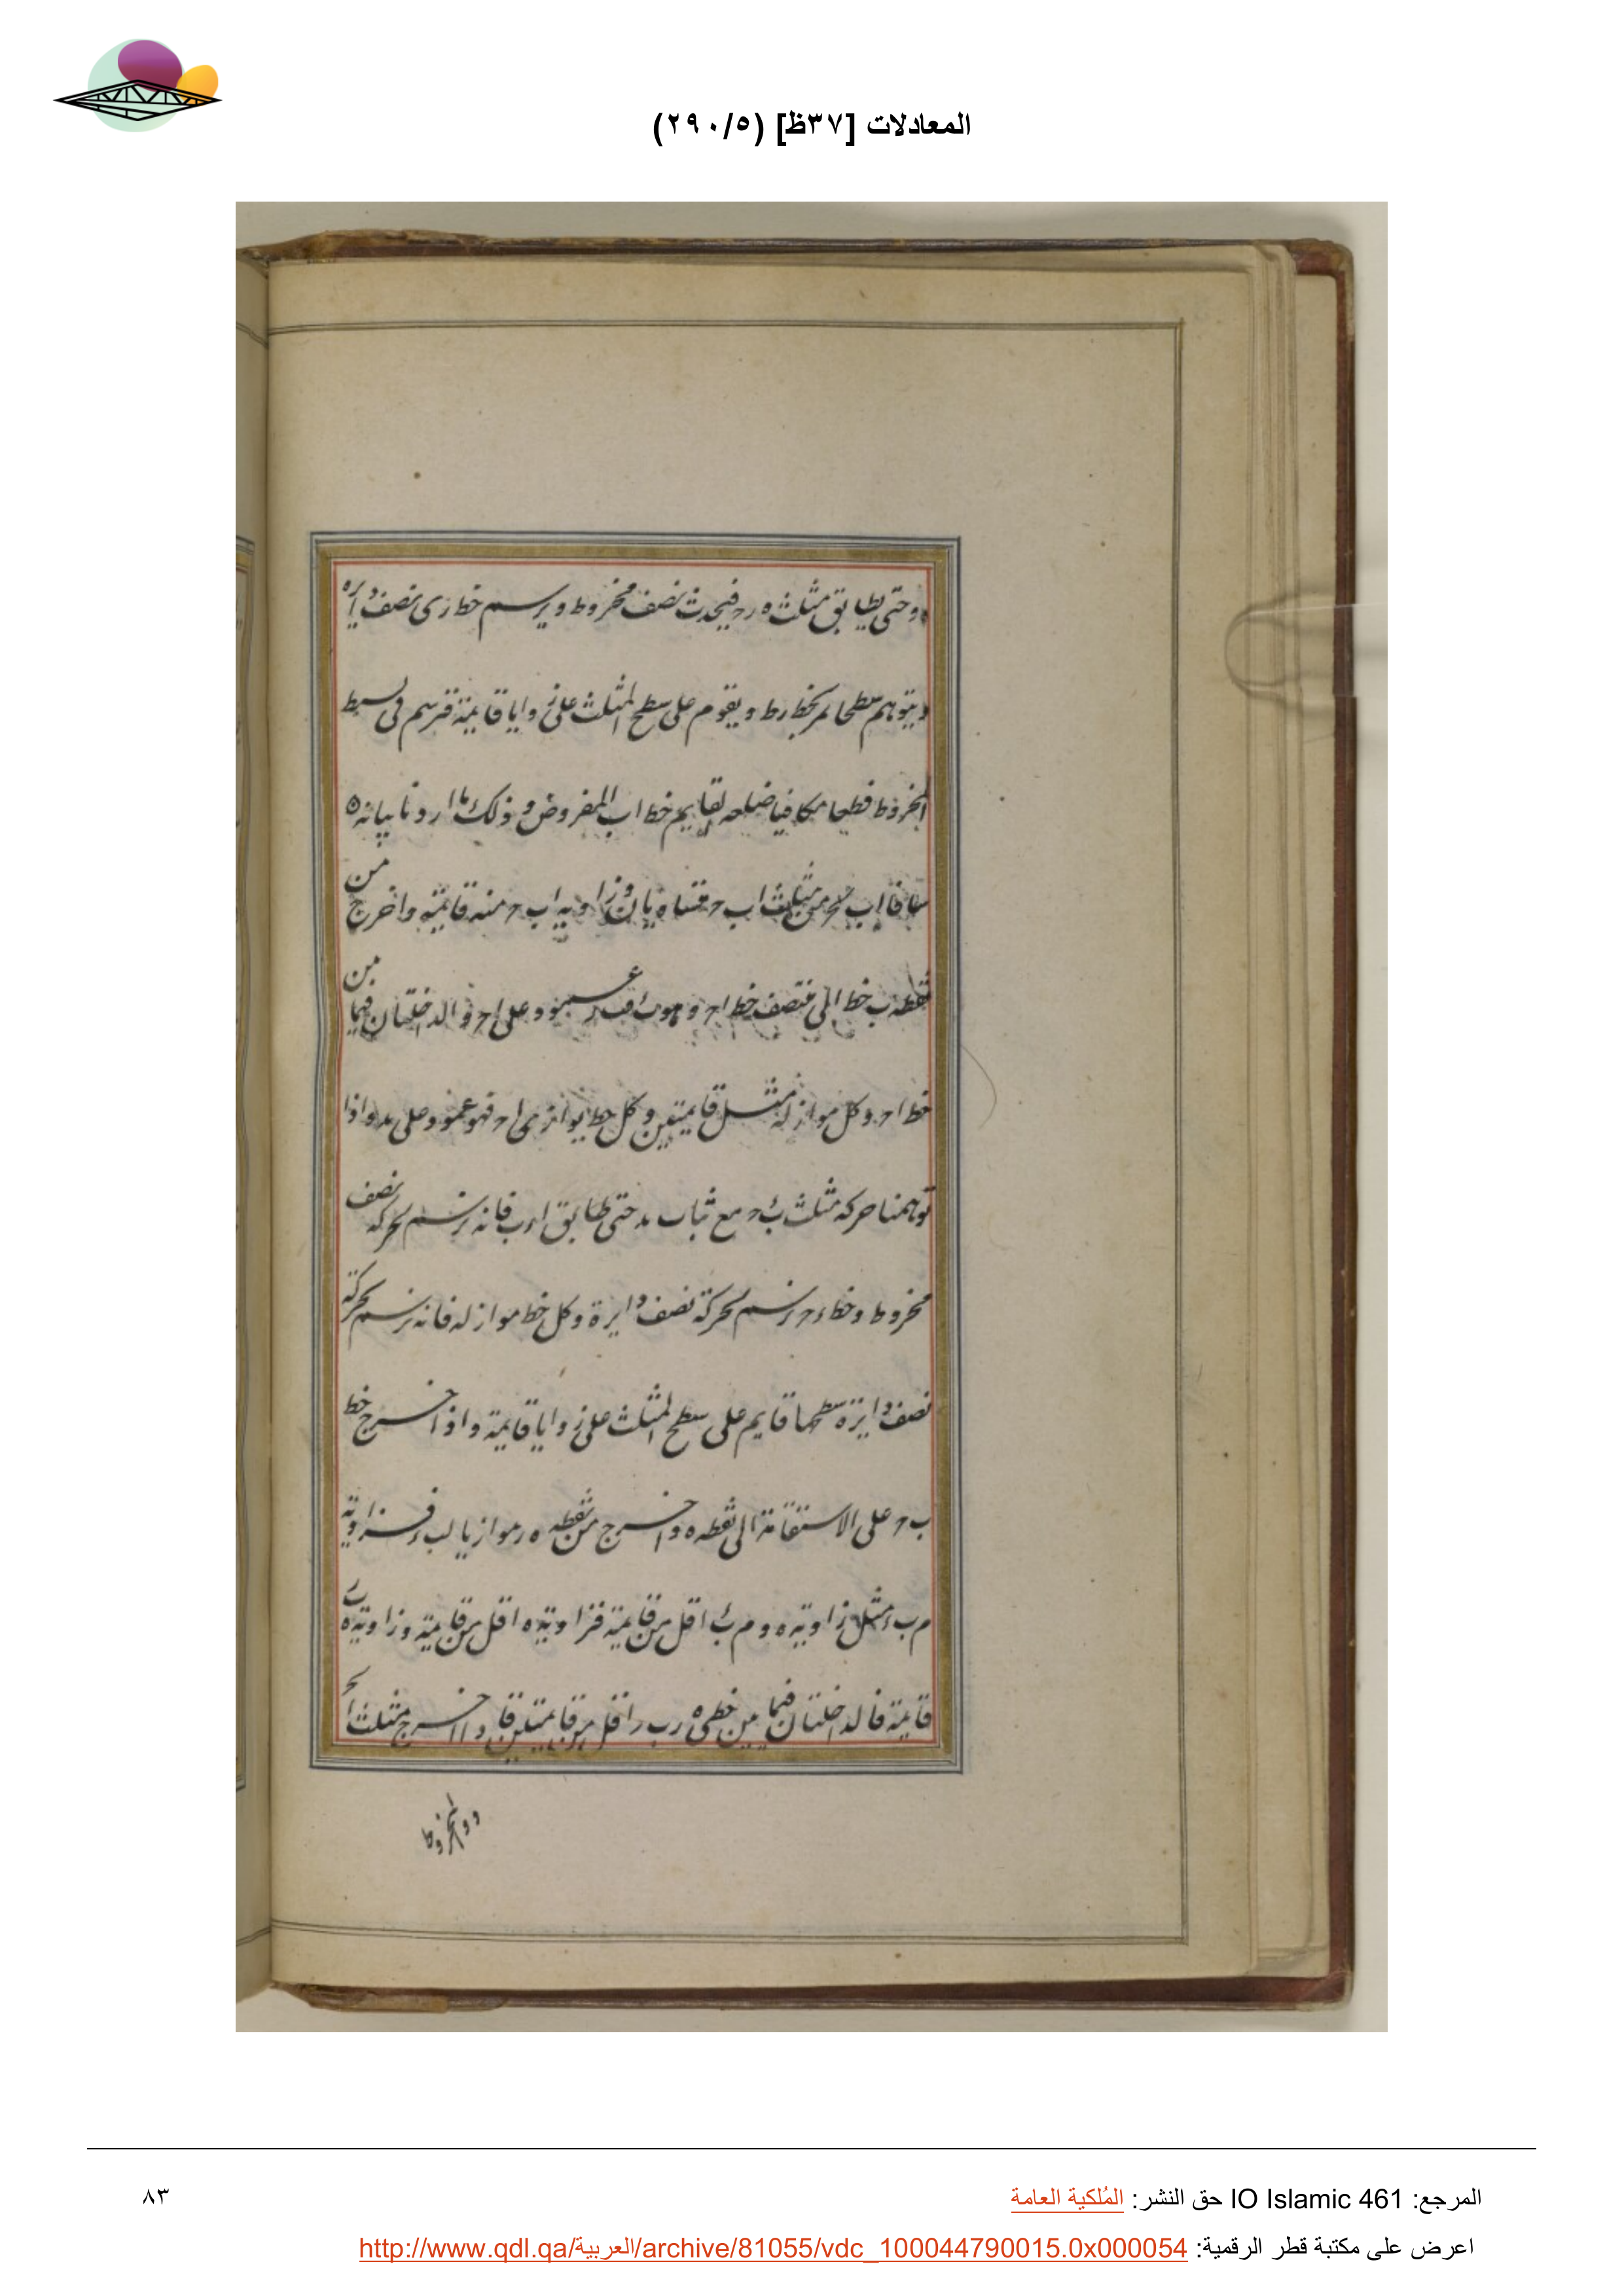 المعادلات [٣٧ظ] (٢٩٠/٥)
وحتى يطابق مثلث ه ر ح فيحدث نصف مخروط ويرسم خط ر ى نصف دايره
ويتوهم سطحا يمر بخط ر ط ويقوم على سطح المثلث على زوايا قايمة فترسم فى بسيط
المخروط قطعا مكافيا ضلعه القايم خط ا ب المفروض وذلك ما اردنا بيانه ه
ساقا ا ب ب ح من مثلث ا ب ح متساويان وزاويه ا ب ح منه قائمة واخرج من
نقطه ب خط الى منتصف خط ا ح وهو ب ء عمود على ا ح والداخلتان فيما بين
خط ا ح وكل مواز له مثل قايمتين وكل خط يوازى ا ح فهو عمود على ب د واذا
توهمنا حركه مثلث ب ء ح مع ثبات ب د حتى طابق ا ء ب فانه يرتسم بحركه نصف
مخروط وخط ء ح يرتسم بحركة نصف دايرة وكل خط مواز له فانه يرتسم بحركة
نصف دايرة سطحها قايم على سطح المثلث على زوايا قايمة واذا اخرج خط
ب ح على الاستقامة الى نقطه ه واخرج من نقطه ه ر موازيا لب ء فزاوية
م ب ء مثل زاوية ه و م ب ء اقل من قايمة فزاوية ه اقل من قايمة وزاوية ه ر ب
قايمة فالداخلتان فيما بين خطى ه ر ب ر اقل من قايمتين فاذا اخرج مثلث ا ح
و و المخروط
المرجع: IO Islamic 461 حق النشر: المُلكية العامة
٨٣
اعرض على مكتبة قطر الرقمية: http://www.qdl.qa/العربية/archive/81055/vdc_100044790015.0x000054